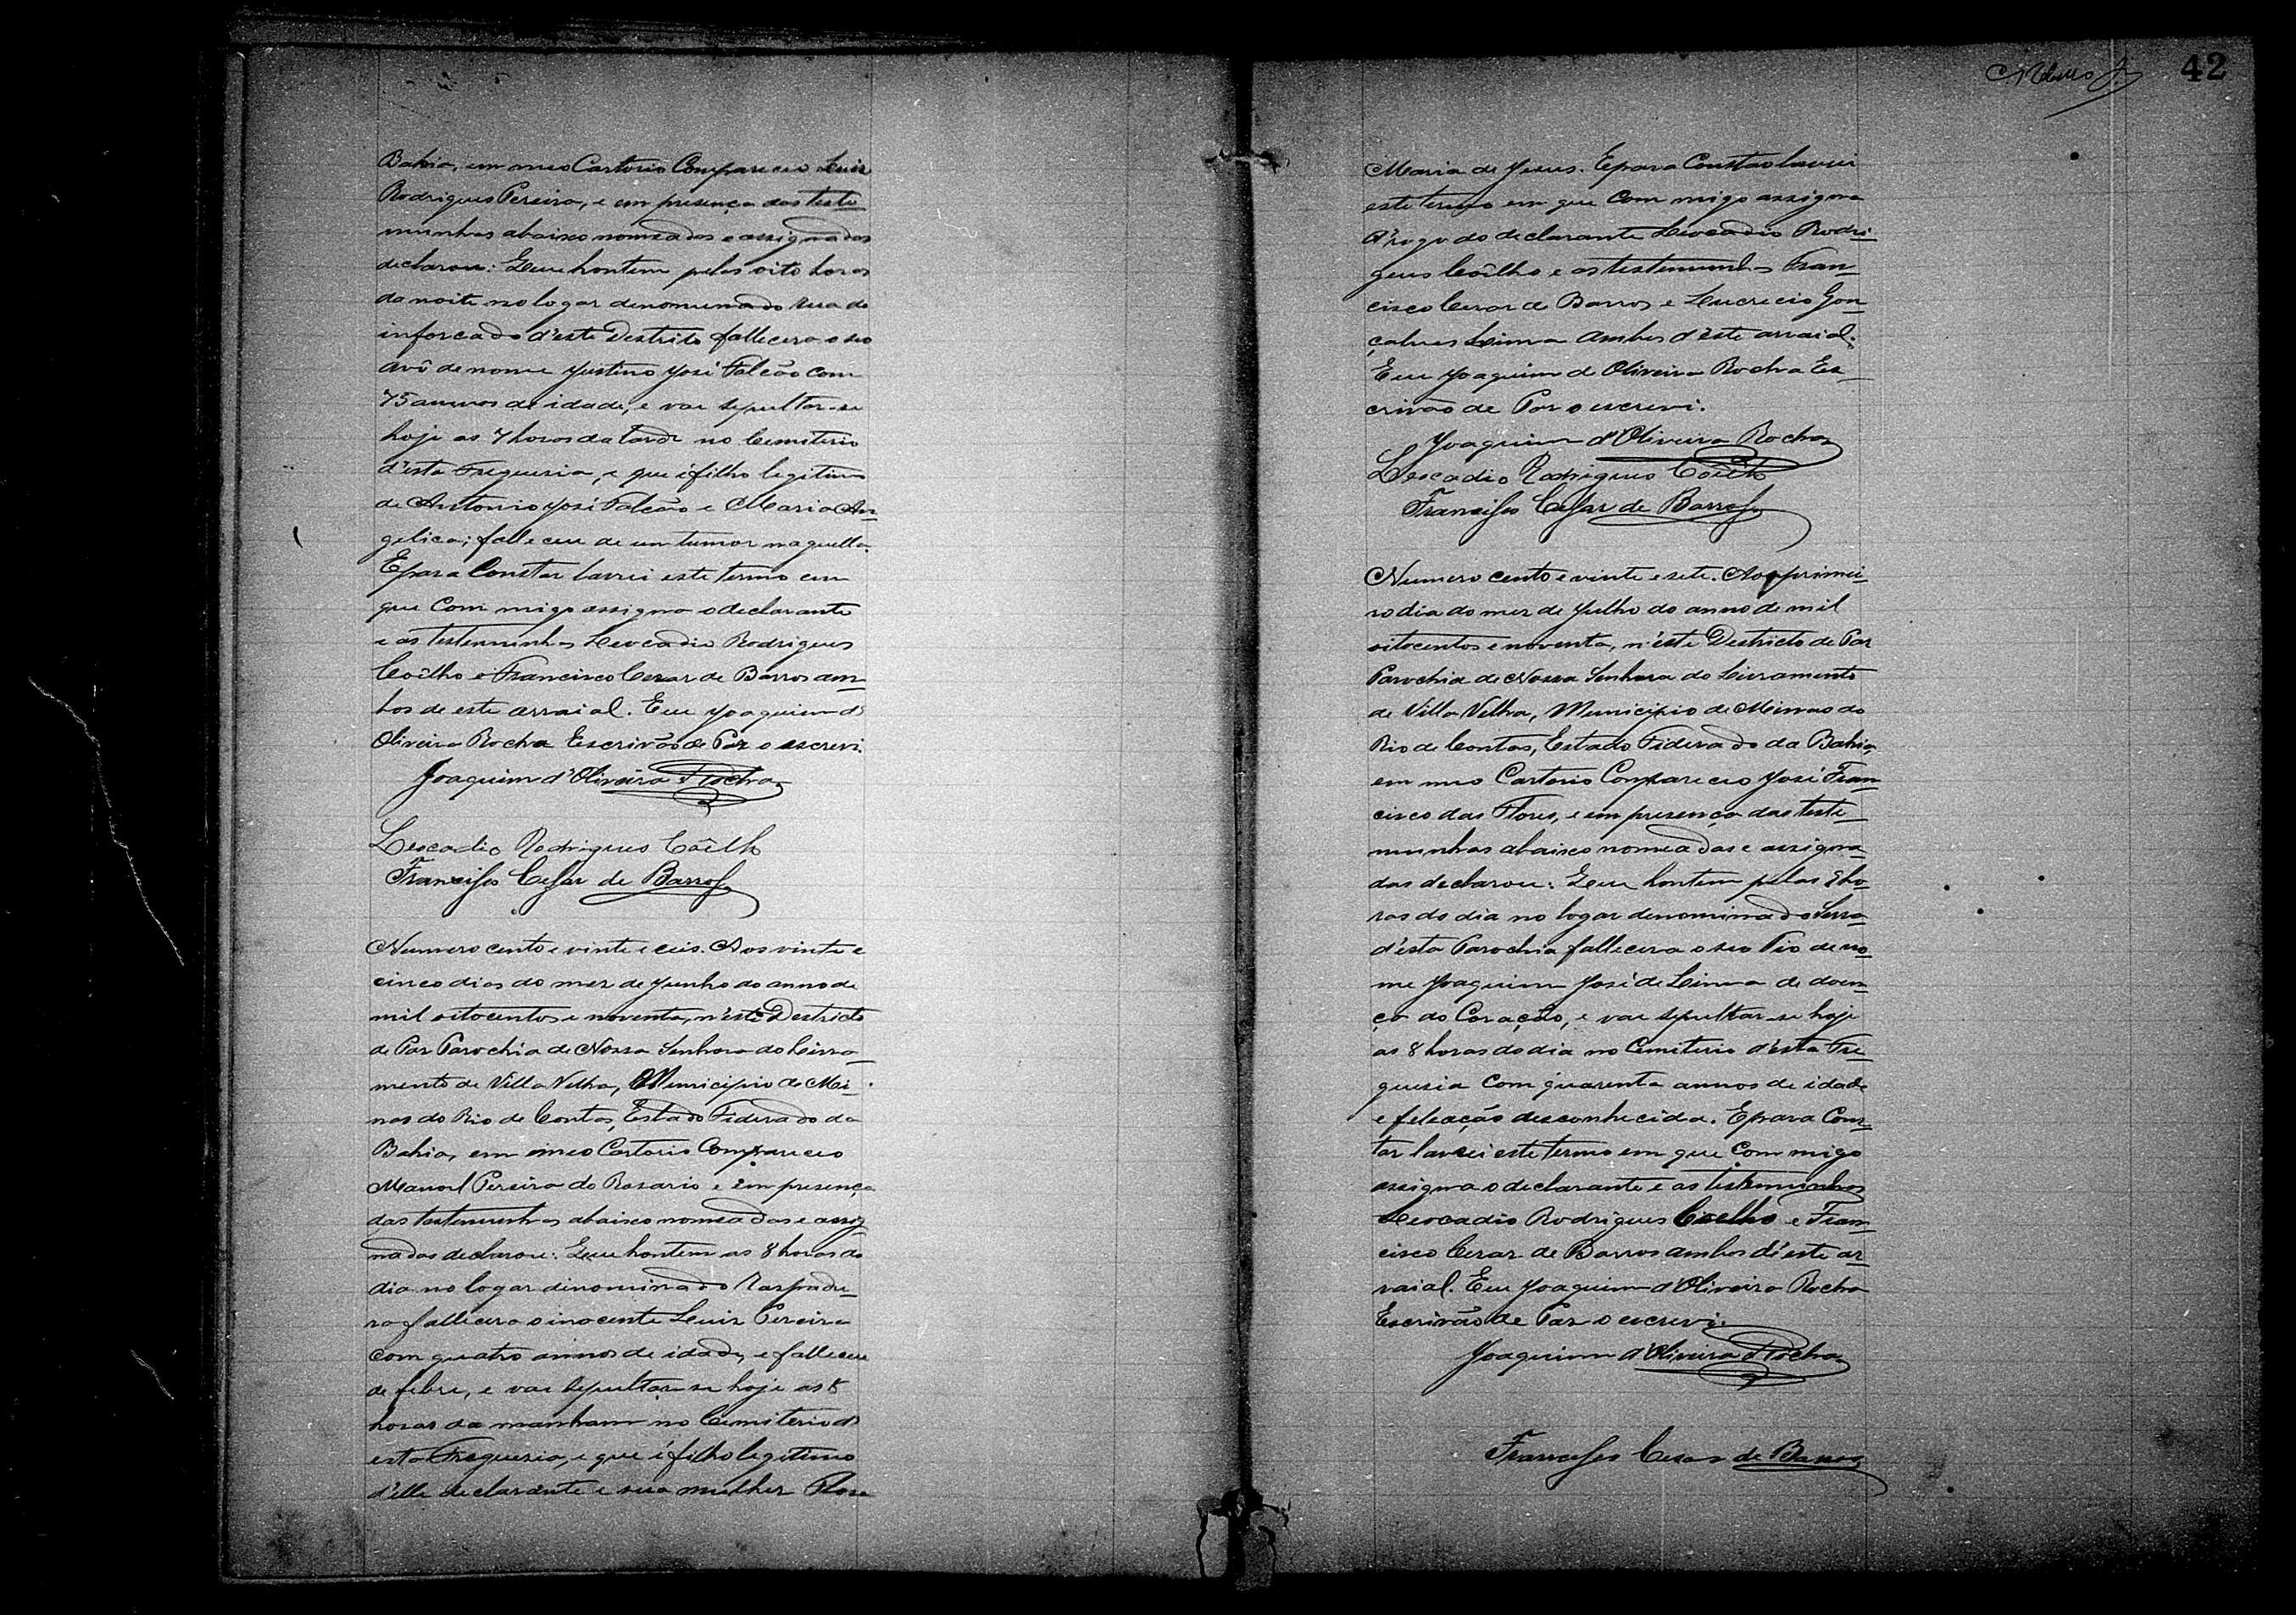 Bahia, em meo Cartorio Compareceo Luiz
Rodrigues Pereira, e em presença das teste
munhas abaixo nomeadas e assignadas
declarou: Que hontem pelas oito horas
da noite no logar denominado Rua do
inforcado d'este Destrito fallecera o seo
avô de nome Justino José Falcão com
75 annos de idade, e vae sepultar-se
hoje as 7 horas da tarde no Cemiterio
d'esta Freguesia, e que é filho legitimo
de Antonio José Falcão e Maria An
gelica; falleceu de um tumor na guella.
E para Constar lavrei este termo em
que Com migo assigna o declarante
e as testemunhas Leocadio Rodrigues
Coêlho e Francisco Cezar de Barros am
bos de este arraial. Eu Joaquim d'
Oliveira Rocha Escrivão de Paz o escrevi.
Joaquim d'Oliveira Rocha
Leocadio Rodrigues Coêlho
Francisco Cesar de Barros
Numero cento e vinte e ceis. Aos vinte e
cinco dias do mez de Junho do anno de
mil oitocentos e noventa, n'este Destricto
de Paz Parochia de Nossa Senhora do Livra
mento de Villa Velha, Municipio de Mi
nas do Rio de Contas, Estado Federado da
Bahia, em meo Cartorio Compareceo
Manoel Pereira do Rosario e em presença
das testemunhas abaixo nomeadas e assig
nadas declarou: Que hontem as 8 horas do
dia no logar dinominado Raspadu
ra fallecera o inocente Luiz Pereira
com quatro annos de idade, e falleceu
de febre, e vae sepultar-se hoje as 8
horas da manham no Cemiterio d'
esta Freguesia, e que é filho legitimo
d'elle declarante e sua mulher Rosa
42
Maria de Jesus. E para Constar lavrei
este termo em que Com migo assigna
A'rogo do declarante Leocadio Rodri
gues Coêlho e as testemunhas Fran
cisco Cezar de Barros e Lucrecio Gon
çalves Lima ambos d'este arraial.
Eu Joaquim de Oliveira Rocha Es
crivão de Paz o escrevi.
Joaquim d'Oliveira Rocha
Leocadio Rodrigues Coêlho
Francisco Cesar de Barros
Numero cento e vinte e sete. Ao primei
ro dia do mez de Julho do anno de mil
oitocentos e noventa, n'este Destricto de Paz
Parochia de Nossa Senhora do Livramento
de Villa Velha, Municipio de Minas do
Rio de Contas, Estado Federado da Bahia,
em meo Cartorio Compareceo José Fran
cisco das Flores, e em presença das teste
munhas abaixo nomeadas e assigna
das declarou: Que hontem pelas 8 ho
ras do dia no logar denominado Serra
d'esta Parochia fallecera o seo Tio de no
me Joaquim José de Lima de doen
ça do Coração, e vae sepultar-se hoje
as 8 horas do dia no Cemiterio d'esta Fre
guesia Com quarenta annos de idade
e feleação desconhecida. E para Cons
tar lavrei este termo em que Com migo
assigna o declarante e as testemunhas
Leocadio Rodrigues Coelho e Fran
cisco Cezar de Barros ambos d'este ar
raial. Eu Joaquim d'Oliveira Rocha
Escrivão de Paz o escrevi.
Joaquim d'Oliveira Rocha
Francisco Cezar de Barros